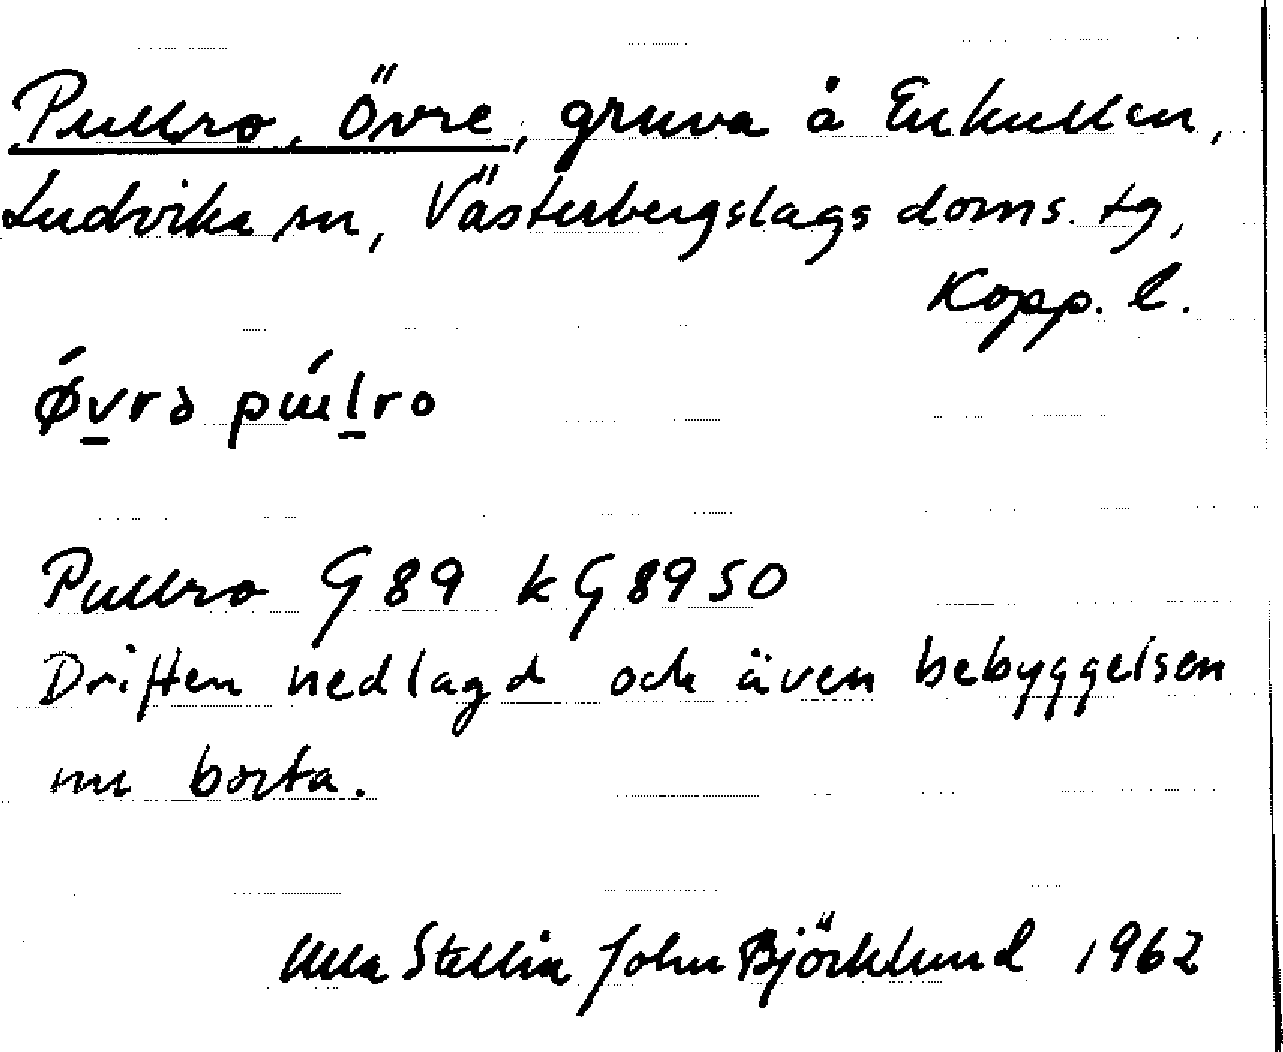 Pullro, Övre, gruva å Enkullen,
Ludvika sn, Västerbergslags doms. tg,
Kopp. l.
ǿvrə púlro
Pullro G 89 k G 8950
Driften nedlagd och även bebyggelsen
nu borta.
Ulla Stellin John Björklund 1962